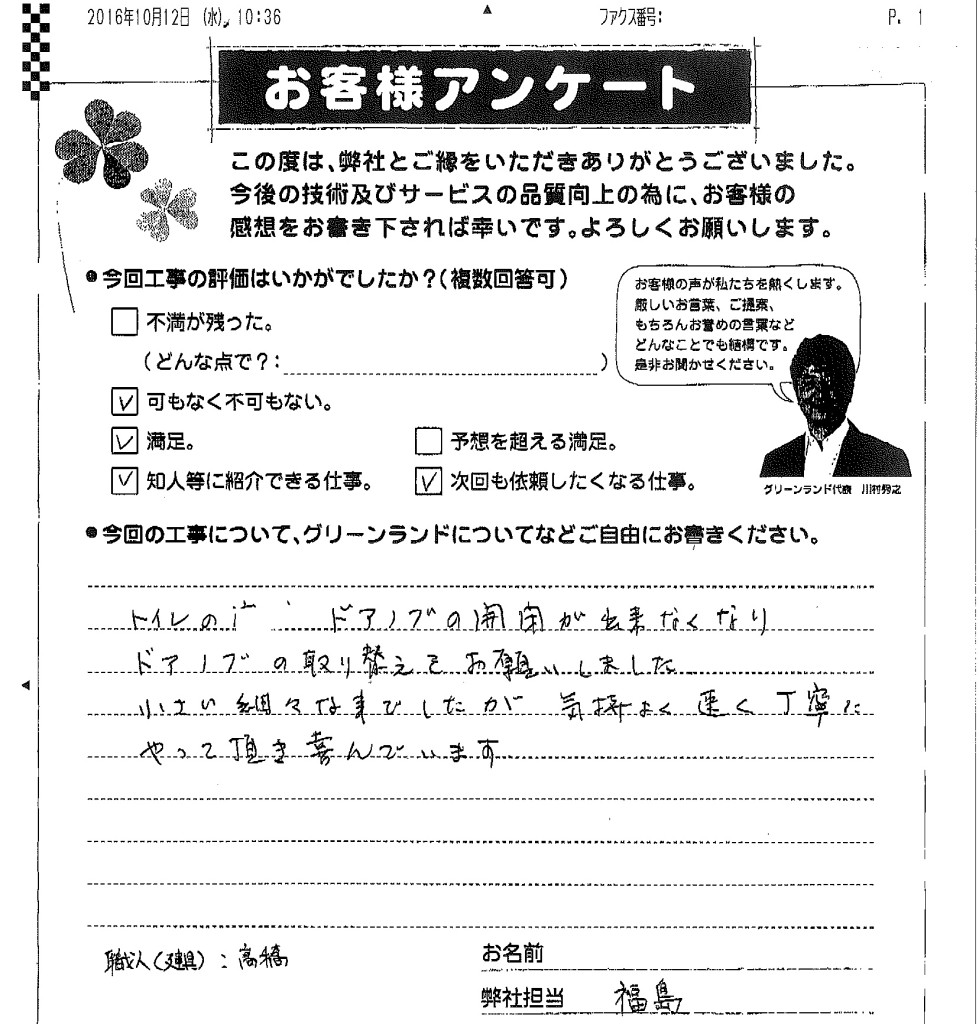 2016年10月12日 (水) 10:36 ファクス番号: P. 1
お客様アンケート
この度は、弊社とご縁をいただきありがとうございました。
今後の技術及びサービスの品質向上の為に、お客様の
感想をお書き下されば幸いです。よろしくお願いします。
●今回工事の評価はいかがでしたか?(複数回答可)
不満が残った。
(どんな点で?: )
可もなく不可もない。
満足。 予想を超える満足。
知人等に紹介できる仕事。 次回も依頼したくなる仕事。
お客様の声が私たちを熱くします。
厳しいお言葉、ご提案、
もちろんお誉めの言葉など
どんなことでも結構です。
是非お聞かせください。
グリーンランド代表 川村
●今回の工事について、グリーンランドについてなどご自由にお書きください。
トイレの ドアノブの開閉が出来なくなり
ドアノブの取り替えをお願いしました
小さい細々な事でしたが 気持よく 速く 丁寧に
やって頂き喜んでいます
職人(建具):高橋
お名前
弊社担当 福島